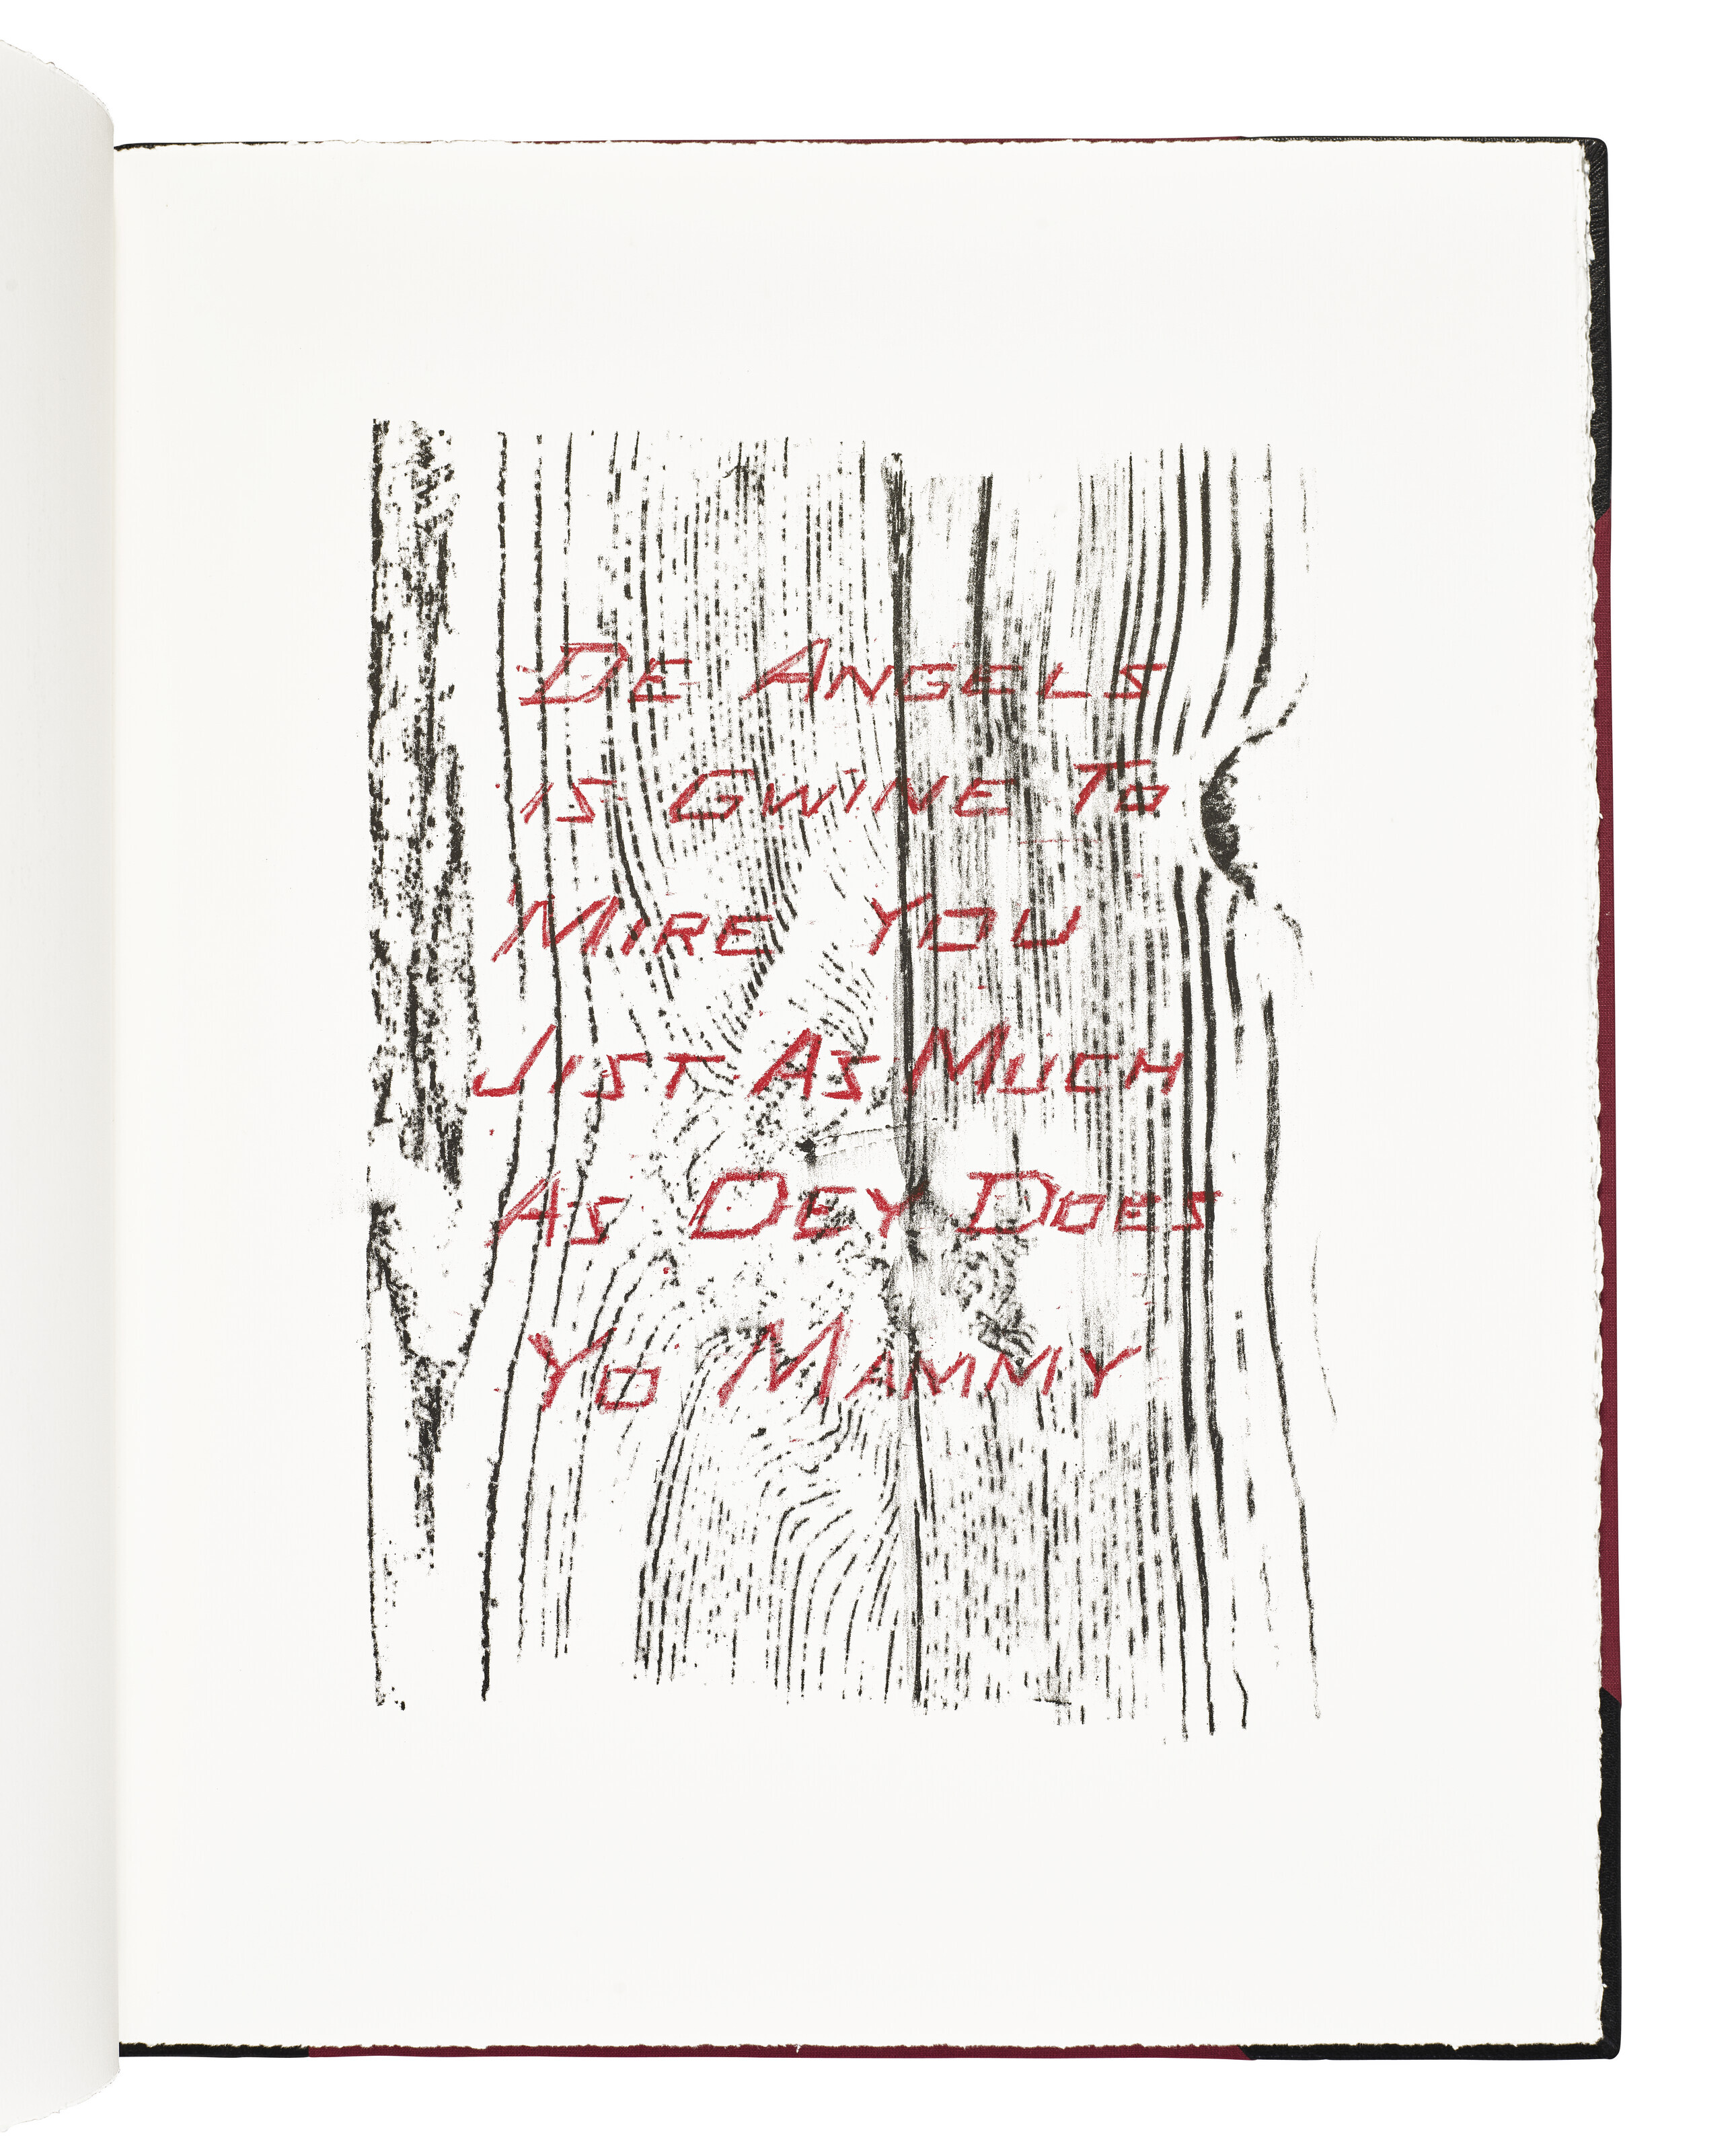 De Angels
is Gwine To
Mire You
Jist As Much
As Dey Does
Yo Mammy